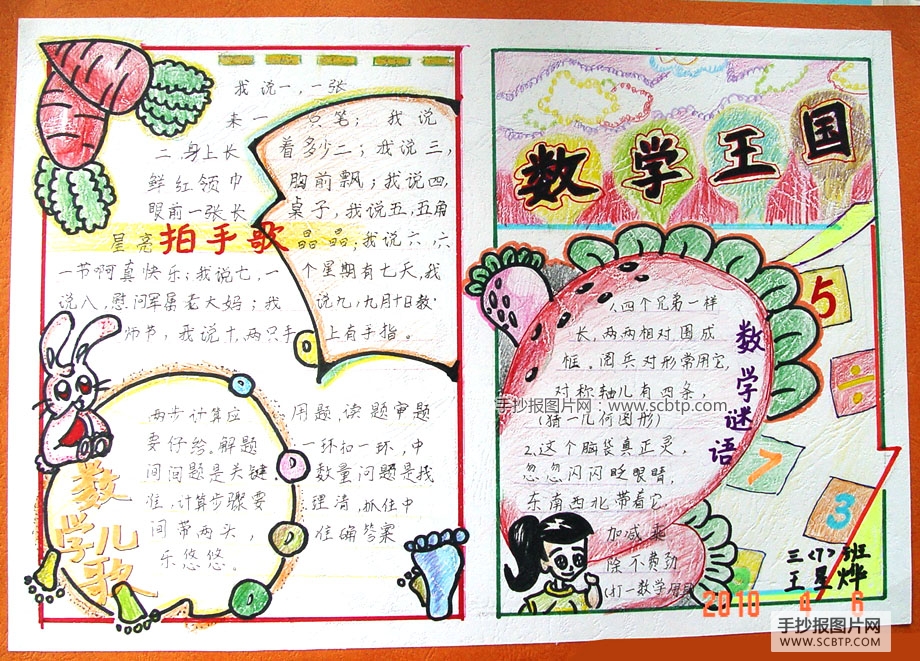 我说一,一张
来一 只笔; 我说
二身上长 着多少二;我说三,
鲜红领巾 胸前飘;我说四,
眼前一张长 桌子,我说五,五角
星亮 晶晶;我说六 六
拍手歌
一节啊真快乐;我说七,一 个星期有七天,我
说八,慰问军属老大妈;我 说九,九月十日教
师节,我说十,两只手 上有手指。
两步计算应 用题,读题审题
要仔给。解题 一环扣一环,中
间问题是关键. 数量问题是找
准,计算步骤要 理清,抓住中
间带两头, 准确答案
乐悠悠。
数学儿歌
数学王国
1.四个兄弟一样
长,两两相对围成
框。阅兵对形常用它,
对称轴儿有四条,
(猜一几何图形)
2.这个脑袋真正灵,
忽忽闪闪眨眼睛,
东南西北带着它,
加减乘
除不费劲
(打一数学用具)
数学谜语
5
÷
7
3
三〈7〉班
王星烨
2010 4 6
手抄报图片网:www.scbtp.com
手抄报图片网
WWW.SCBTP.COM